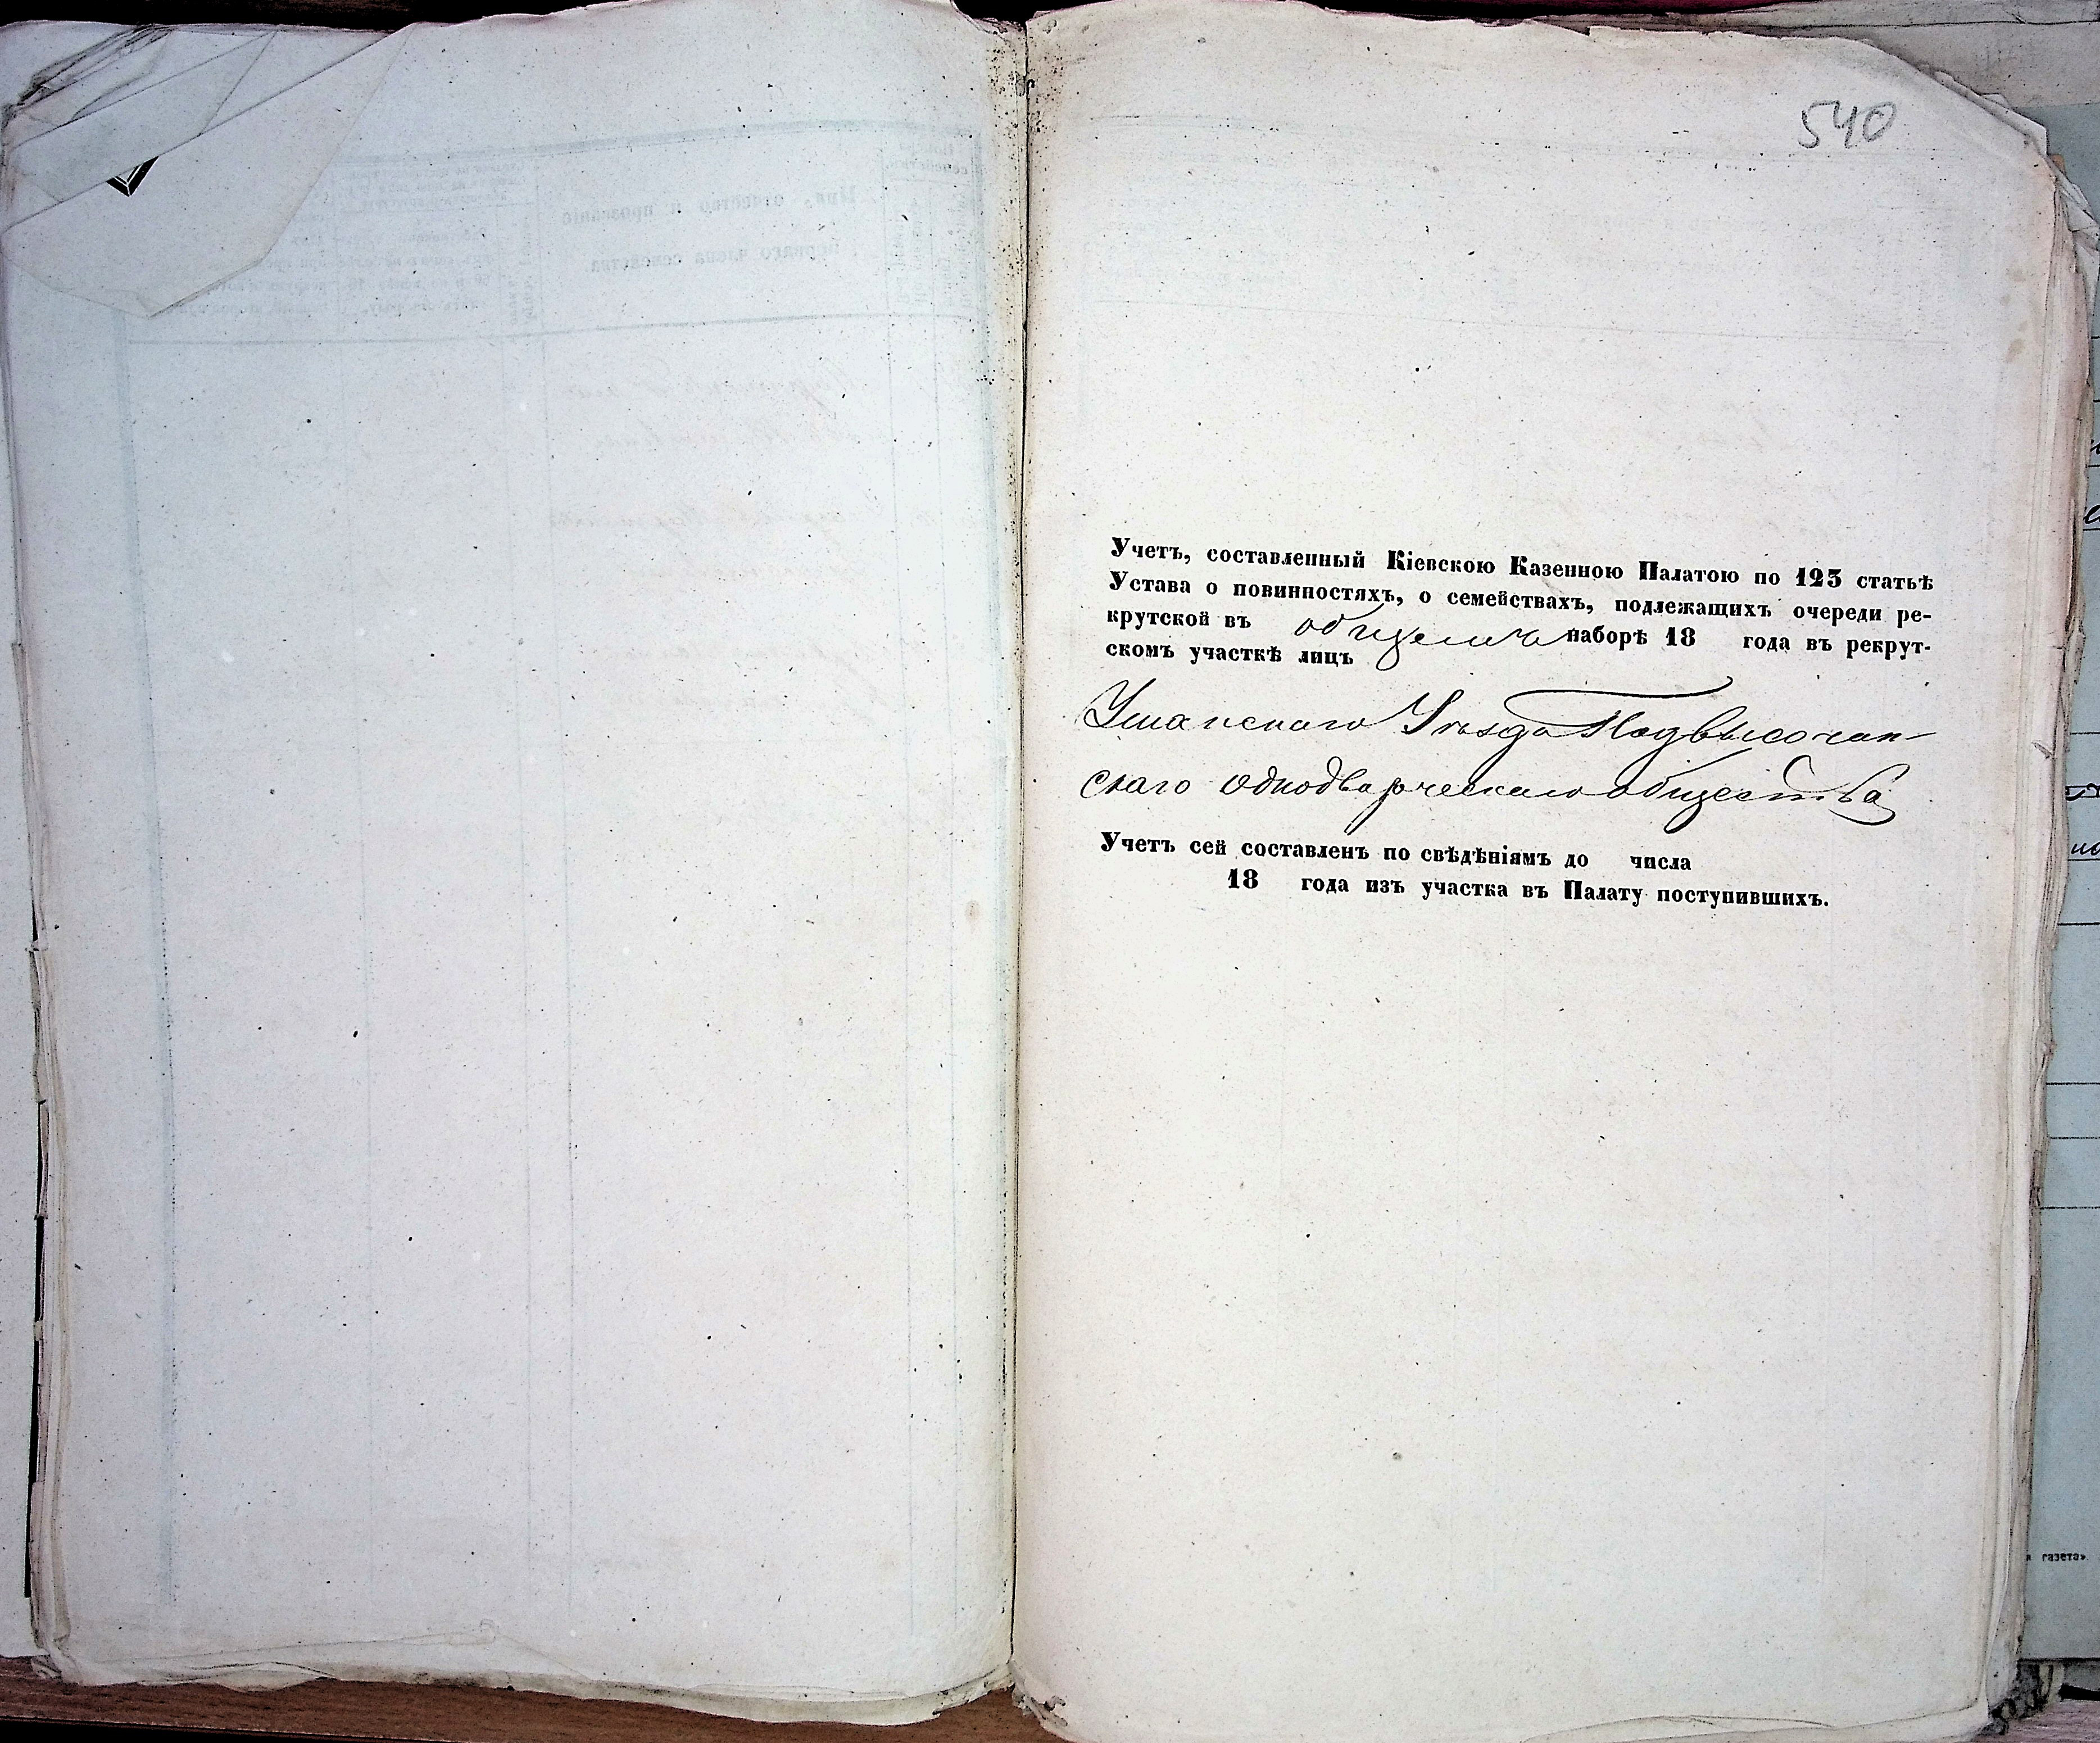 540
Учетъ, составленный Кіевскою Казенною Палатою по 123 статьѣ
Устава о повинностяхъ, о семействахъ, подлежащихъ очереди ре-
крутской въ общемъ наборѣ 18 года въ рекрут-
скомъ участкѣ лицъ
Уманскаго Уѣзда Подвысочан-
скаго однодворческаго общества
Учетъ сей составленъ по свѣдѣніямъ до числа
18 года изъ участка въ Палату поступившихъ.
газета»